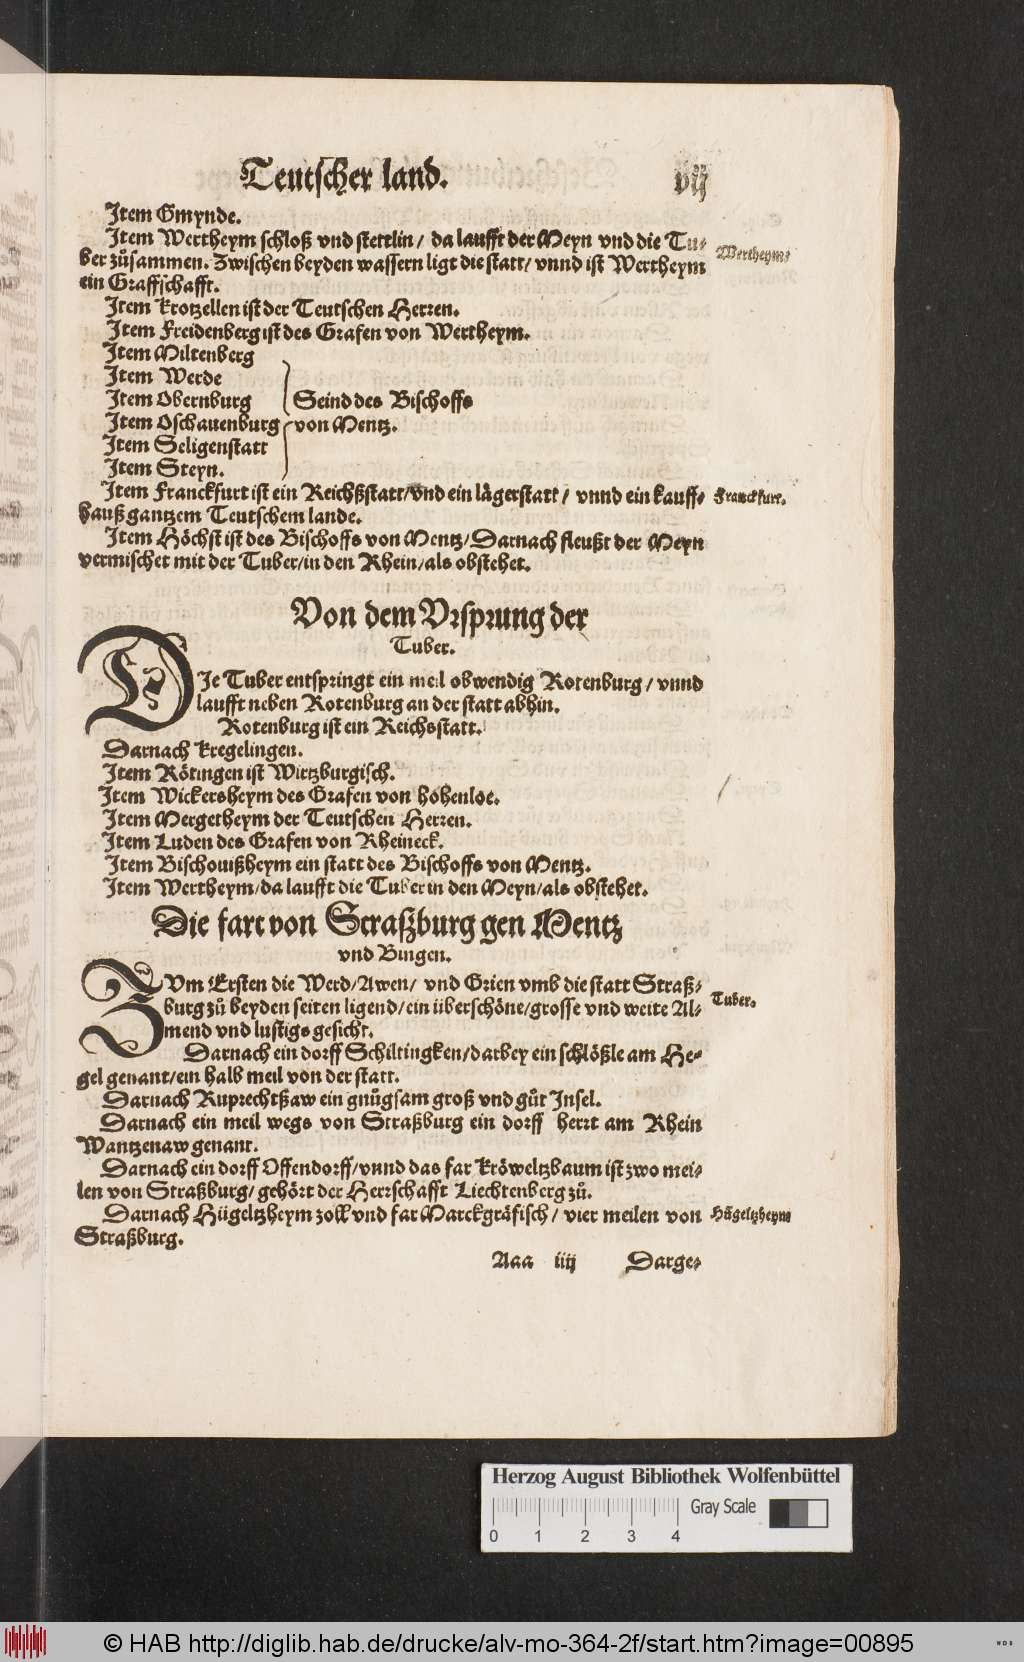 Teutscher land. vij
Item Gmynde.
Item Wertheym schloß vnd stettlin / da laufft der Meyn vnd die Tu-
ber zůsammen. Zwischen beyden wassern ligt die statt / vnnd ist Wertheym
ein Graffschafft.
Wertheym.
Item Krotzellen ist der Teutschen Herren.
Item Freidenberg ist des Grafen von Wertheym.
Item Miltenberg
Item Werde
Item Obernburg
Item Oschauenburg
Item Seligenstatt
Item Steyn.
Seind des Bischoffs
von Mentz.
Item Franckfurt ist ein Reichßstatt / vnd ein lägerstatt / vnnd ein kauff-
hauß gantzem Teutschem lande.
Franckfurt.
Item Höchst ist des Bischoffs von Mentz / Darnach fleußt der Meyn
vermischet mit der Tuber / in den Rhein / als obstehet.
Von dem Vrsprung der
Tuber.
DIe Tuber entspringt ein meil obwendig Rotenburg / vnnd
laufft neben Rotenburg an der statt abhin.
Rotenburg ist ein Reichsstatt.
Darnach Kregelingen.
Item Rötingen ist Wirtzburgisch.
Item Wickersheym des Grafen von Hohenloe.
Item Mergetheym der Teutschen Herren.
Item Luden des Grafen von Rheineck.
Item Bischouißheym ein statt des Bischoffs von Mentz.
Item Wertheym / da laufft die Tuber in den Meyn / als obstehet.
Die fart von Straßburg gen Mentz
vnd Bingen.
ZVm Ersten die Werd / Awen / vnd Grien vmb die statt Straß-
burg zů beyden seiten ligend / ein überschöne / grosse vnd weite Al-
mend vnd lustigs gesicht.
Tuber.
Darnach ein dorff Schiltingken / darbey ein schlößle am He-
gel genant / ein halb meil von der statt.
Darnach Ruprechtßaw ein gnůgsam groß vnd gůt Insel.
Darnach ein meil wegs von Straßburg ein dorff herrt am Rhein
Wantzenaw genant.
Darnach ein dorff Offendorff / vnnd das far Kröweltzbaum ist zwo mei-
len von Straßburg / gehört der Herrschafft Liechtenberg zů.
Darnach Hügeltzheym zoll vnd far Marckgräfisch / vier meilen von
Straßburg.
Hügeltzheym
Aaa iiij Darge-
Herzog August Bibliothek Wolfenbüttel
0 1 2 3 4
Gray Scale
© HAB http://diglib.hab.de/drucke/alv-mo-364-2f/start.htm?image=00895